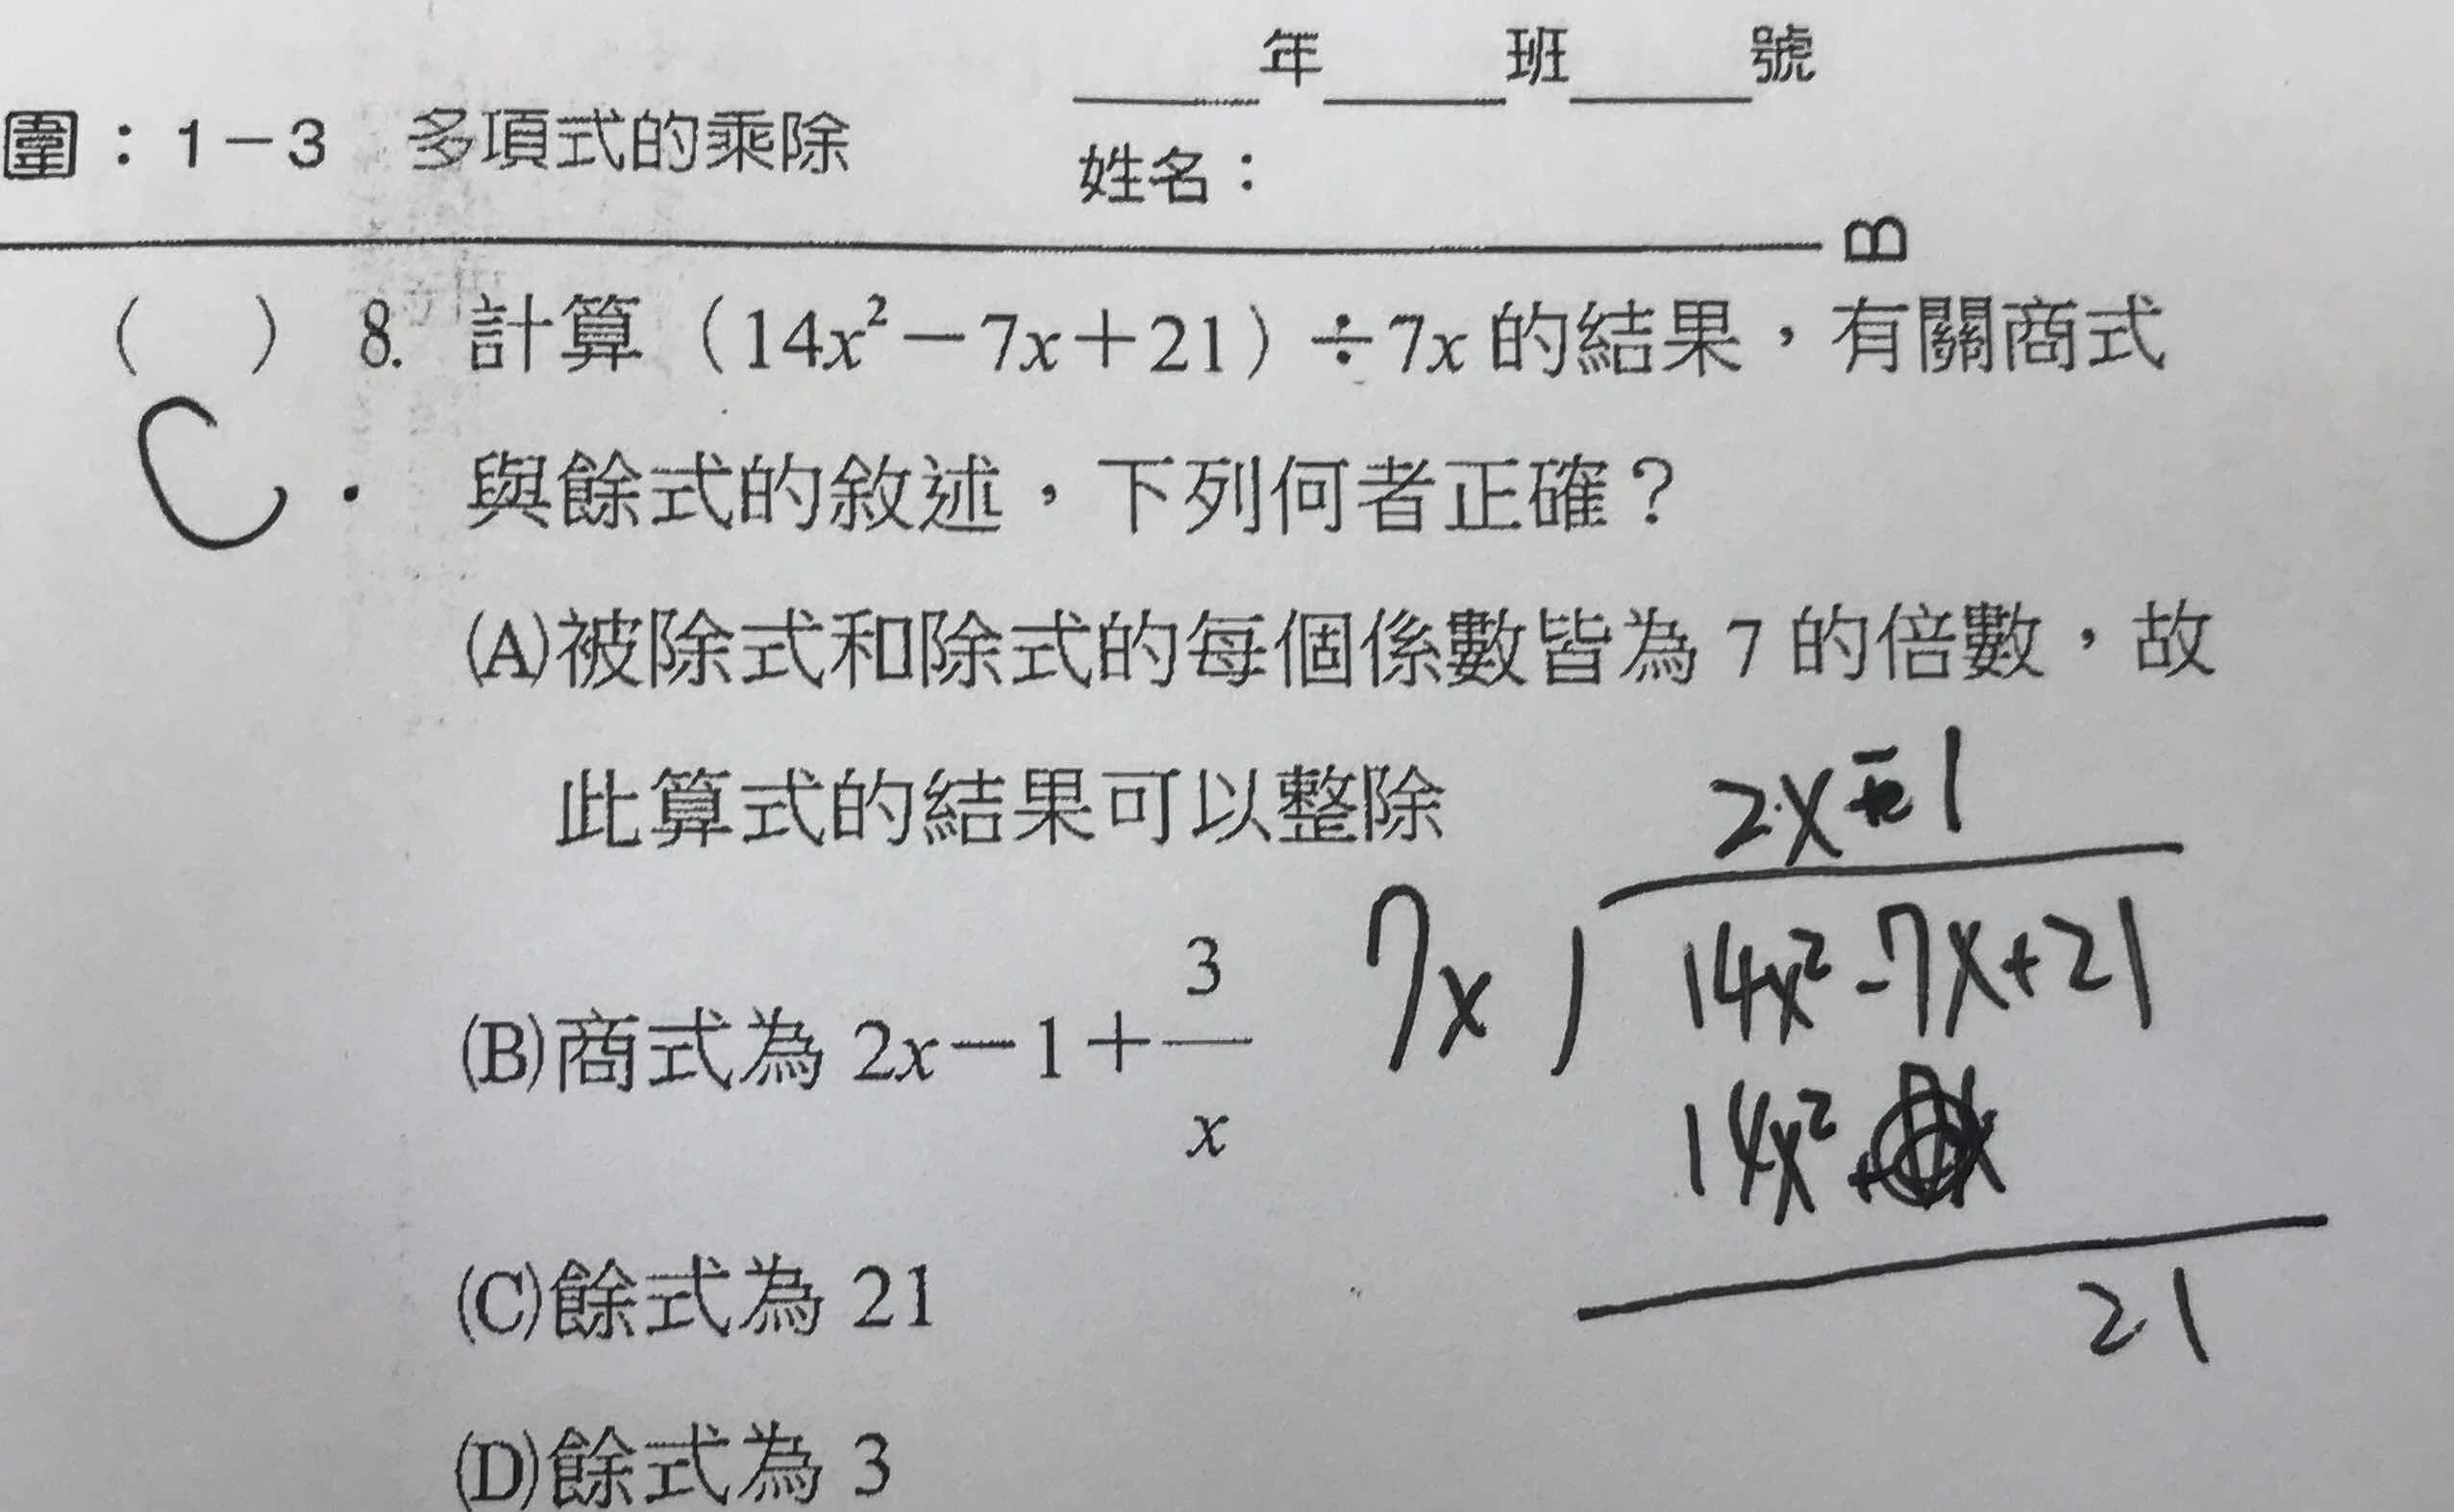 ___年___班___號
圍：1－3 多項式的乘除
姓名：
B
（ ）8. 計算（14x²－7x＋21）÷7x的結果，有關商式
C.
與餘式的敘述，下列何者正確？
(A)被除式和除式的每個係數皆為7的倍數，故
此算式的結果可以整除
2x-1
7x
14x²-7x+21
(B)商式為 2x－1＋3/x
14x²
(C)餘式為 21
21
(D)餘式為 3